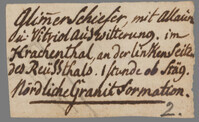 Glimer Schiefer, mit Allaun
bei Vitriol auswitterung. im
Krachenthal, an der linken Seite
des Reussthals. 1 stunde ob Stäg.
Nördliche Granit formation.
2.